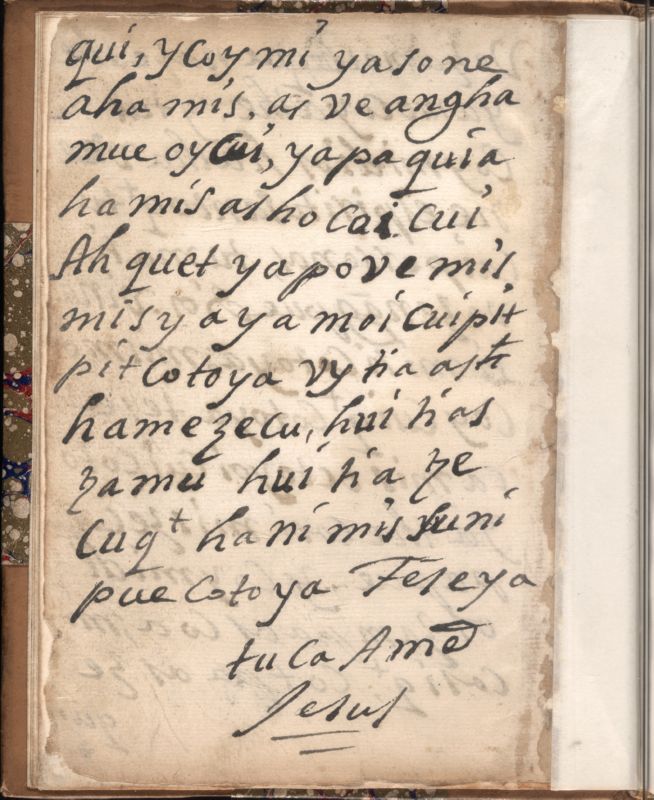 7
qui, y coy mi ya sone
aha mis, as ve angha
mue oy cui, ya pa quia
ha mis as ho cai cui
Ah quet ya po ve mis
mis y a ya moi cuipit
pit cotoya vy tia ast
hamezecu, hui ti as
zamu hui tia ze
cuqt ha ni mis huni
pue cotoya Feseya
tuca Amē
Jesus